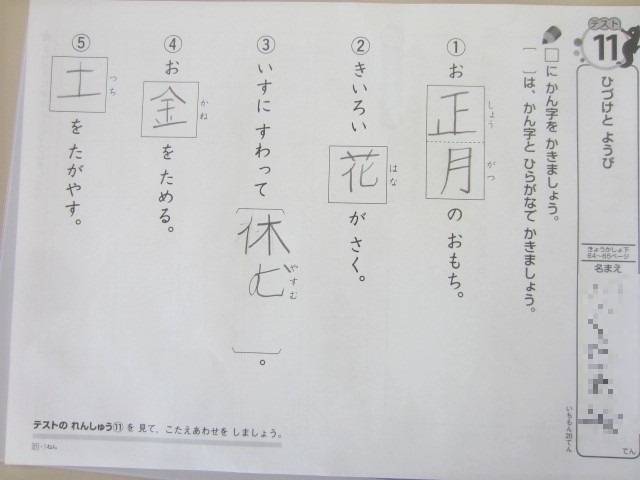 テスト
11
ひづけと ようび
きょうかしょ下
64〜65ページ
名まえ
いちもん20てん
てん
□に かん字を かきましょう。
〔 〕は、かん字と ひらがなで かきましょう。
① お正月の おもち。
しょう がつ
② きいろい 花が さく。
はな
③ いすに すわって 〔休む〕。
やすむ
④ お金を ためる。
かね
⑤ 土を たがやす。
つち
テストの れんしゅう⑪を 見て、こたえあわせを しましょう。